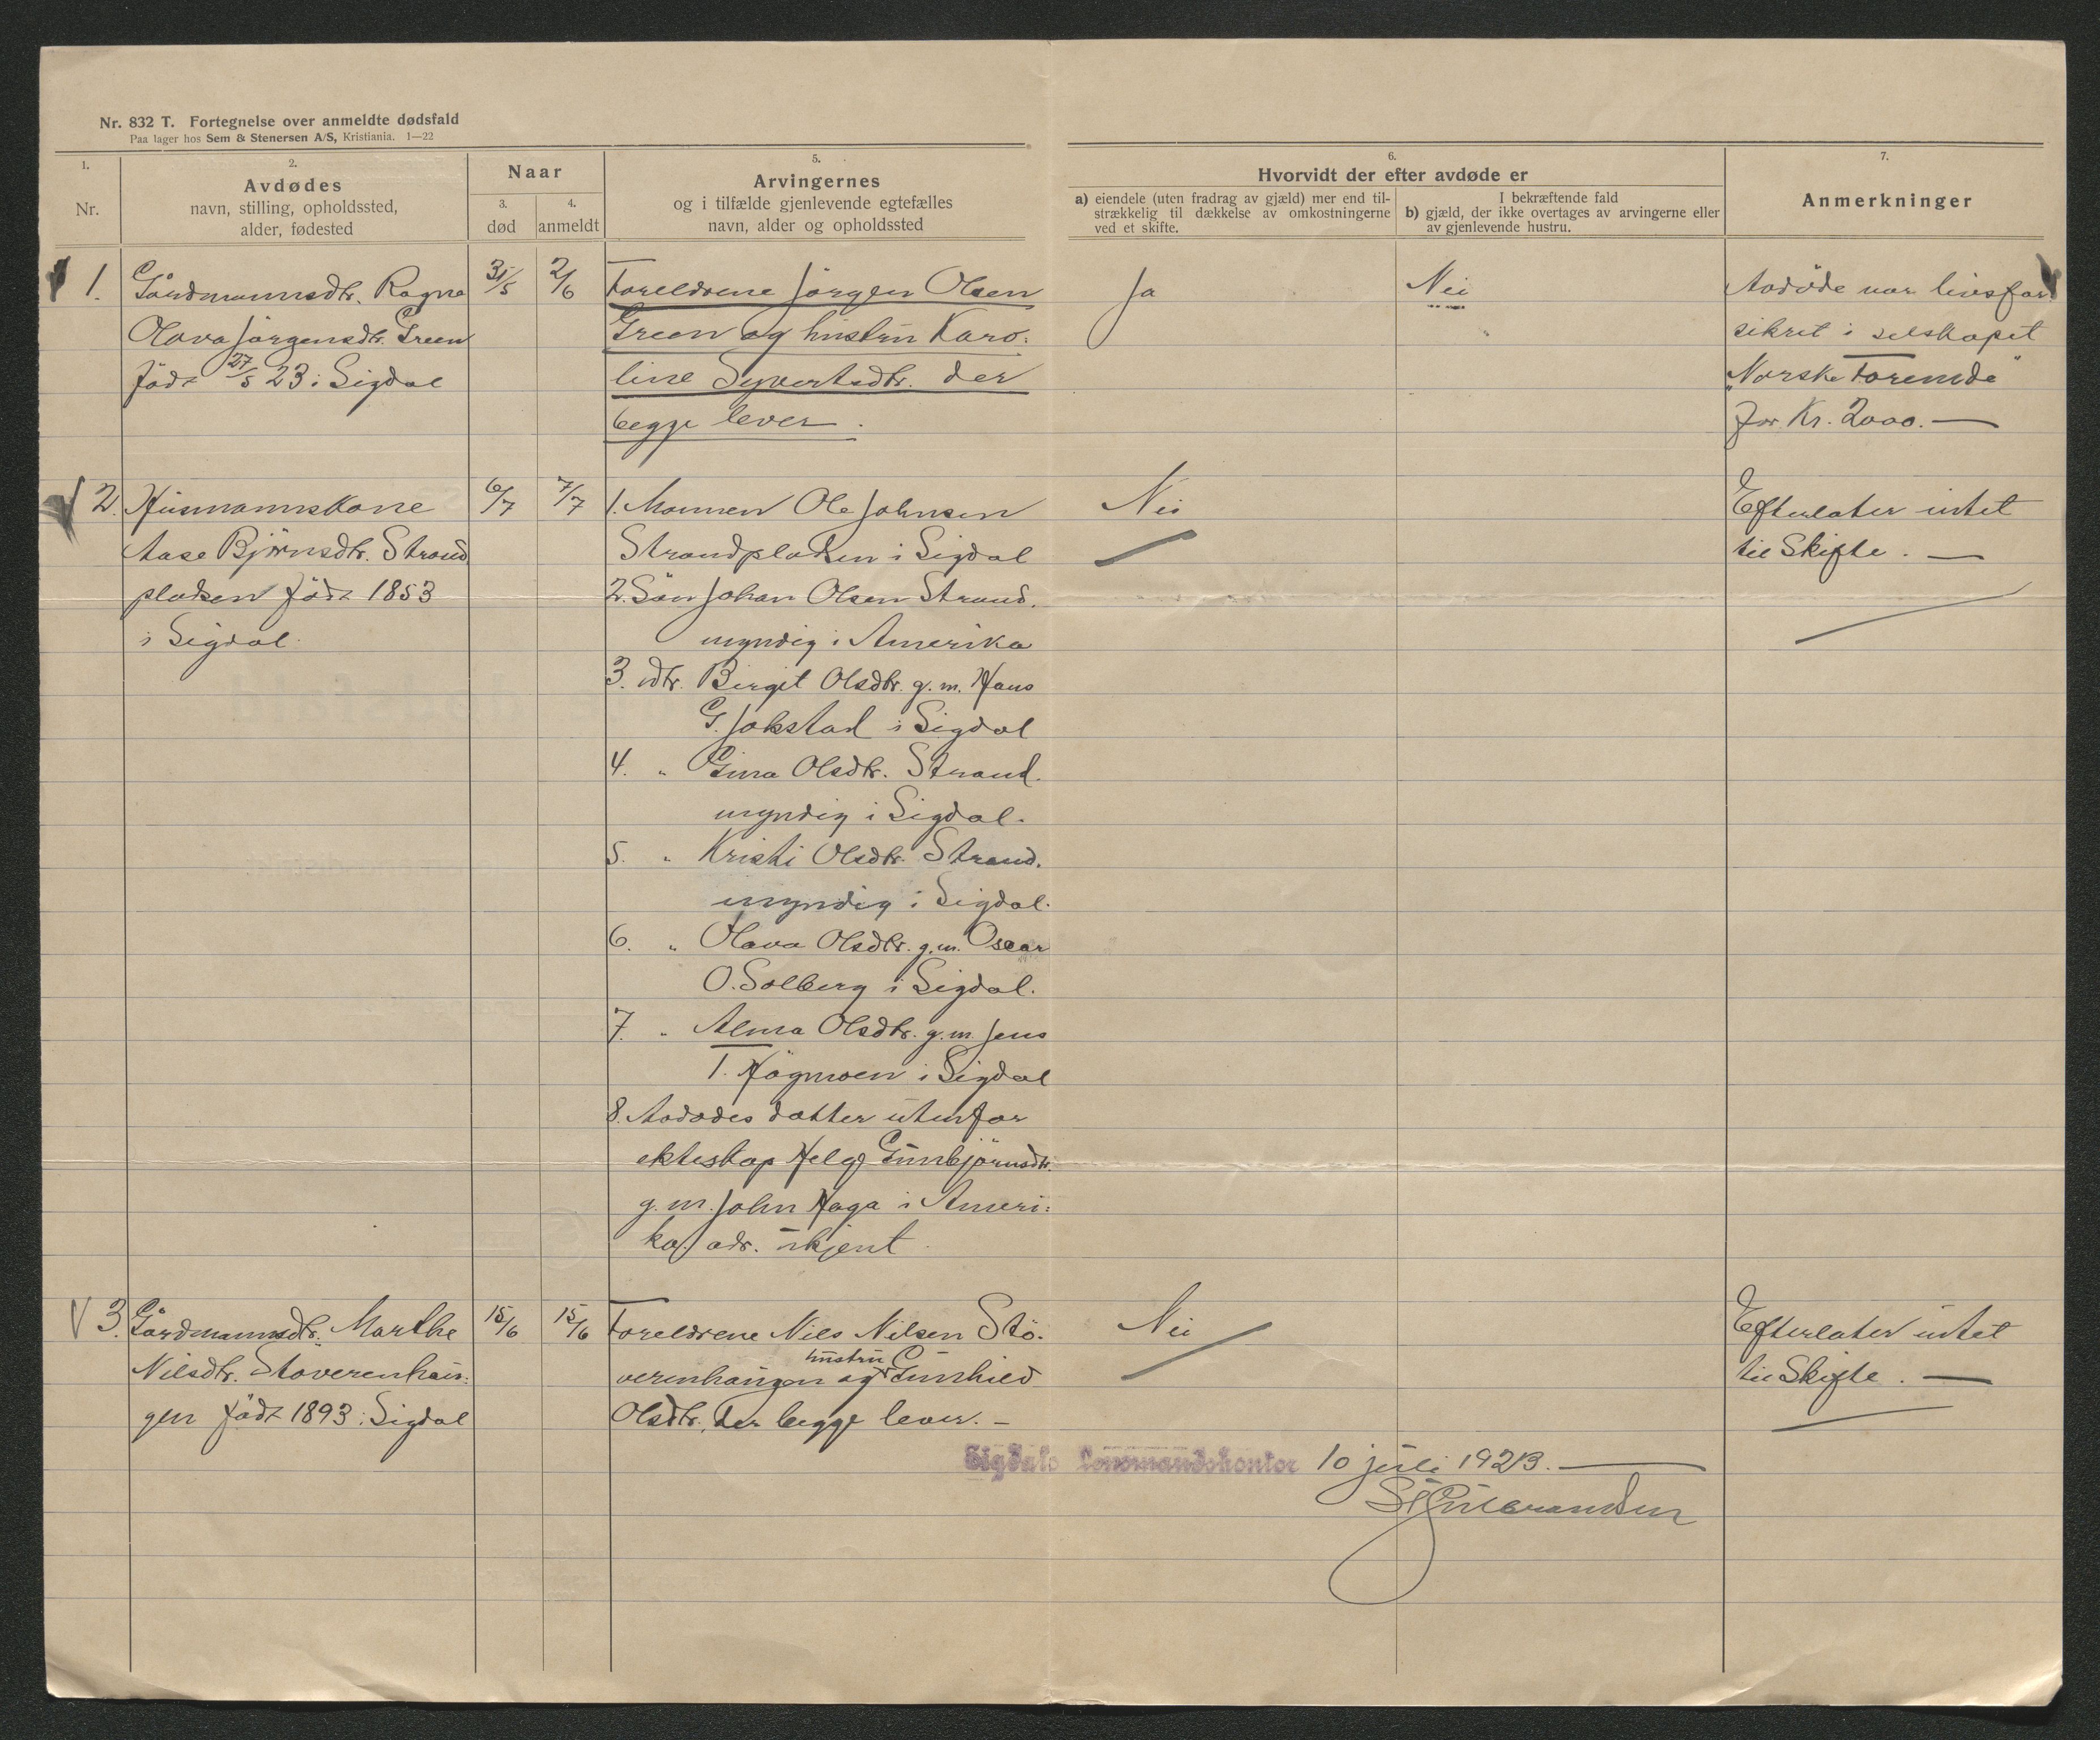 Nr. 832 T. Fortegnelse over anmeldte dødsfald
Paa lager hos Sem & Stenersen A/S, Kristiania. 1—22
1.
Nr.
2.
Avdødes
navn, stilling, opholdssted,
alder, fødested
Naar
3.
død
4.
anmeldt
5.
Arvingernes
og i tilfælde gjenlevende egtefælles
navn, alder og opholdssted
6.
Hvorvidt der efter avdøde er
a) eiendele (uten fradrag av gjæld) mer end til-
strækkelig til dækkelse av omkostningerne
ved et skifte.
I bekræftende fald
b) gjæld, der ikke overtages av arvingerne eller
av gjenlevende hustru.
7.
Anmerkninger
1.
Gårdmannsdtr. Ragna
Olava Jörgensdtr. Green
född 27/5 23 i Sigdal
31/5
2/6
Foreldrene Jörgen Olsen
Green og hustru Karo-
line Syvertsdtr. der
begge lever.
Ja
Nei
Avdöde var livsfor
sikret i selskapet
"Norske Forende"
for Kr. 2000.—
2.
Husmannskone
Aase Björnsdtr. Strand
pladsen född 1853
i Sigdal.
6/7
7/7
1. Mannen Ole Johnsen
Strandpladsen i Sigdal
2. Sön Johan Olsen Strand.
myndig i Amerika
3. dtr. Birgit Olsdtr. g.m. Hans
G. Jokstad i Sigdal
4. " Gina Olsdtr. Strand.
myndig i Sigdal.
5. " Kristi Olsdtr. Strand.
myndig i Sigdal.
6. " Olava Olsdtr. g.m. Oscar
O. Solberg i Sigdal.
7. " Alma Olsdtr. g.m. Jens
T. Högmoen i Sigdal
8. Avdödes datter utenfor
ekteskap Helge Gunbjörnsdtr.
g.m. John Haga i Ameri-
ka, adr. ukjent.
Nei
Efterlater intet
til Skifte. —
3.
Gårdmannsdtr. Marthe
Nilsdtr. Stöverenhau-
gen född 1893 i Sigdal
15/6
15/6
Foreldrene Nils Nilsen Stö-
hustru
verenhaugen og Gunhild
Olsdtr. der begge lever. —
Nei
Efterlater intet
til Skifte. —
Sigdals Lensmandskontor 10 juli 1923. —